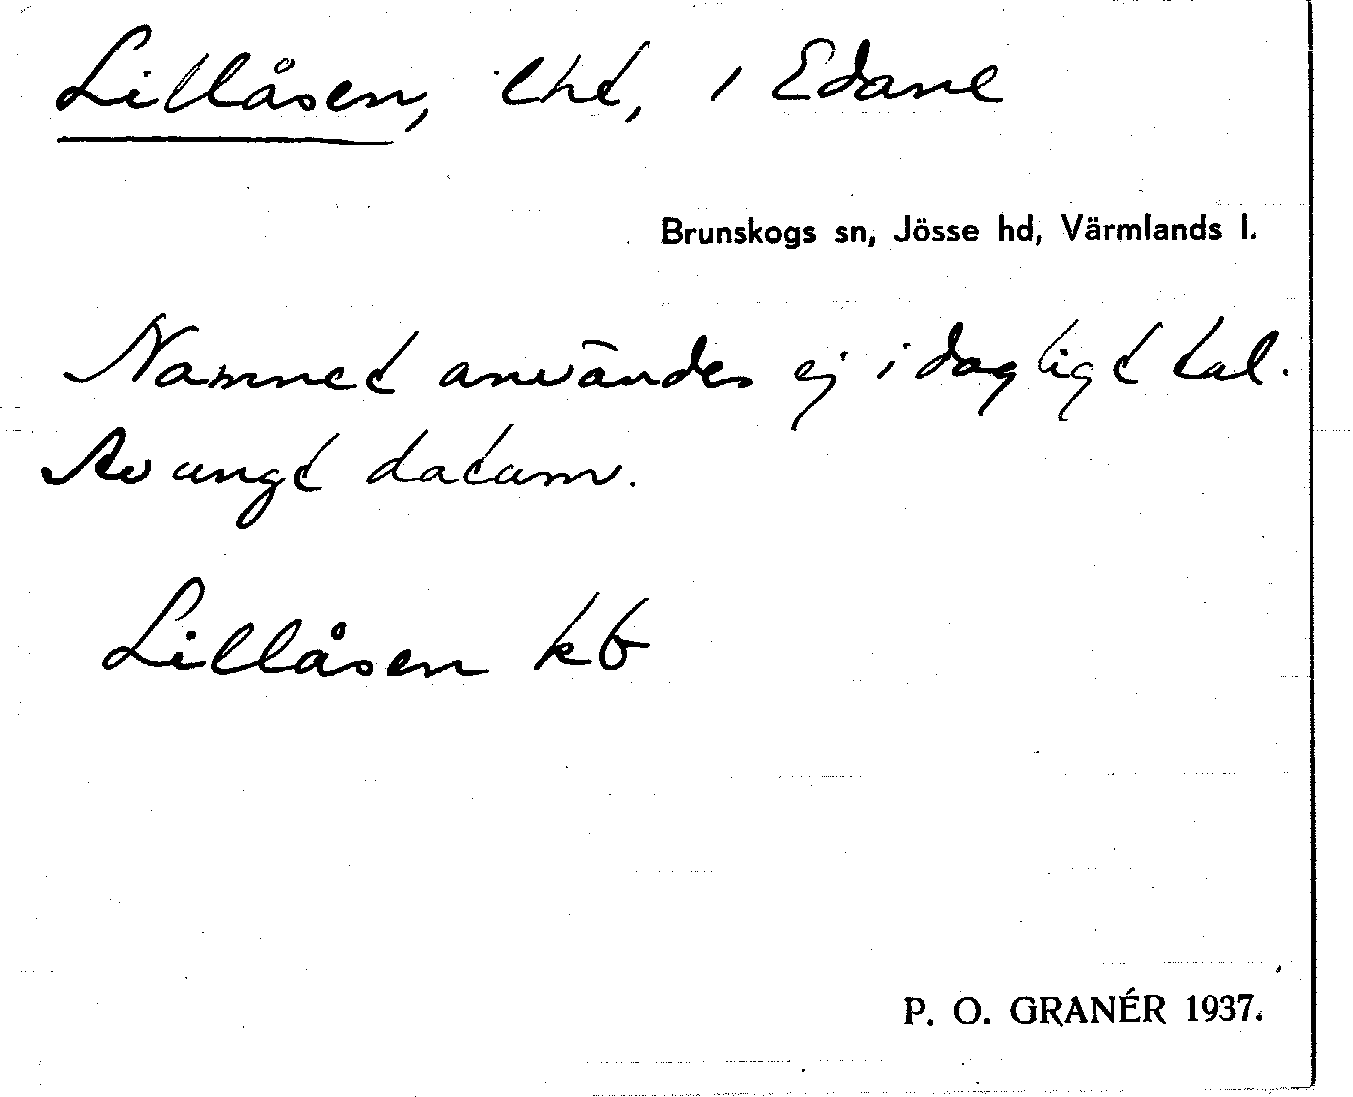 Lillåsen, lht, i Edane
Brunskogs sn, Jösse hd, Värmlands l.
Namnet användes ej i dagligt tal.
Av ungt datum.
Lillåsen kb
P. O. GRANÉR 1937.